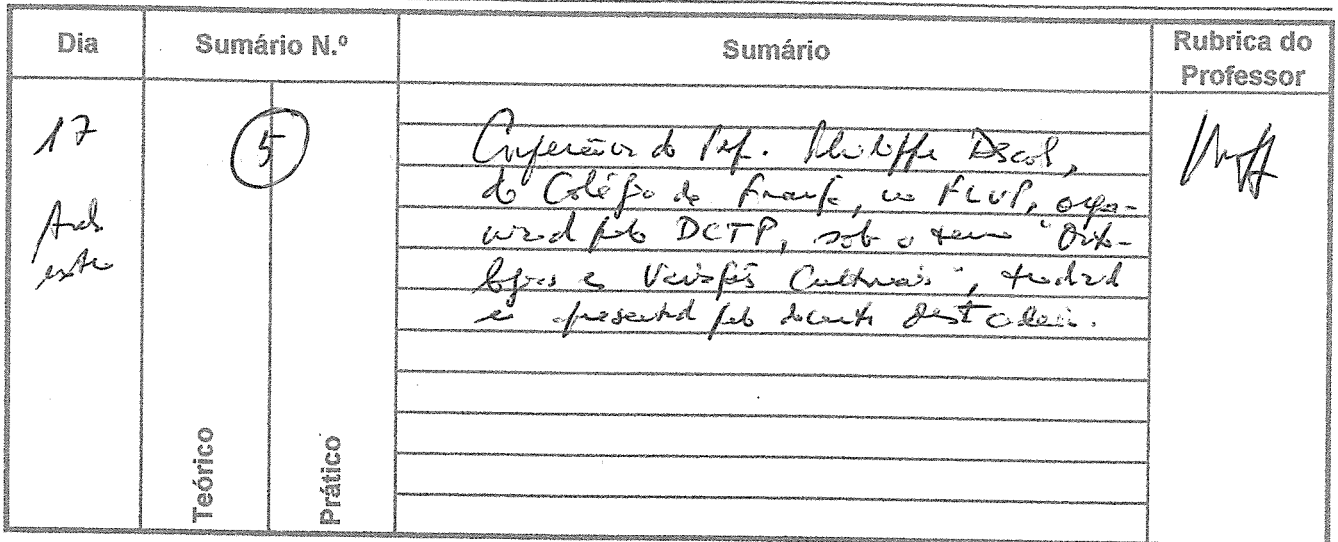 Dia
Sumário N.º
Sumário
Rubrica do
Professor
17
5
Conferência do Prof. Philippe Descola,
do Colégio de França, na FLUP, orga-
nizada pelo DCTP, sob o tema "Onto-
logias e Variações Culturais", traduzida
e apresentada pelo docente desta cadeira.
Teórico
Prático